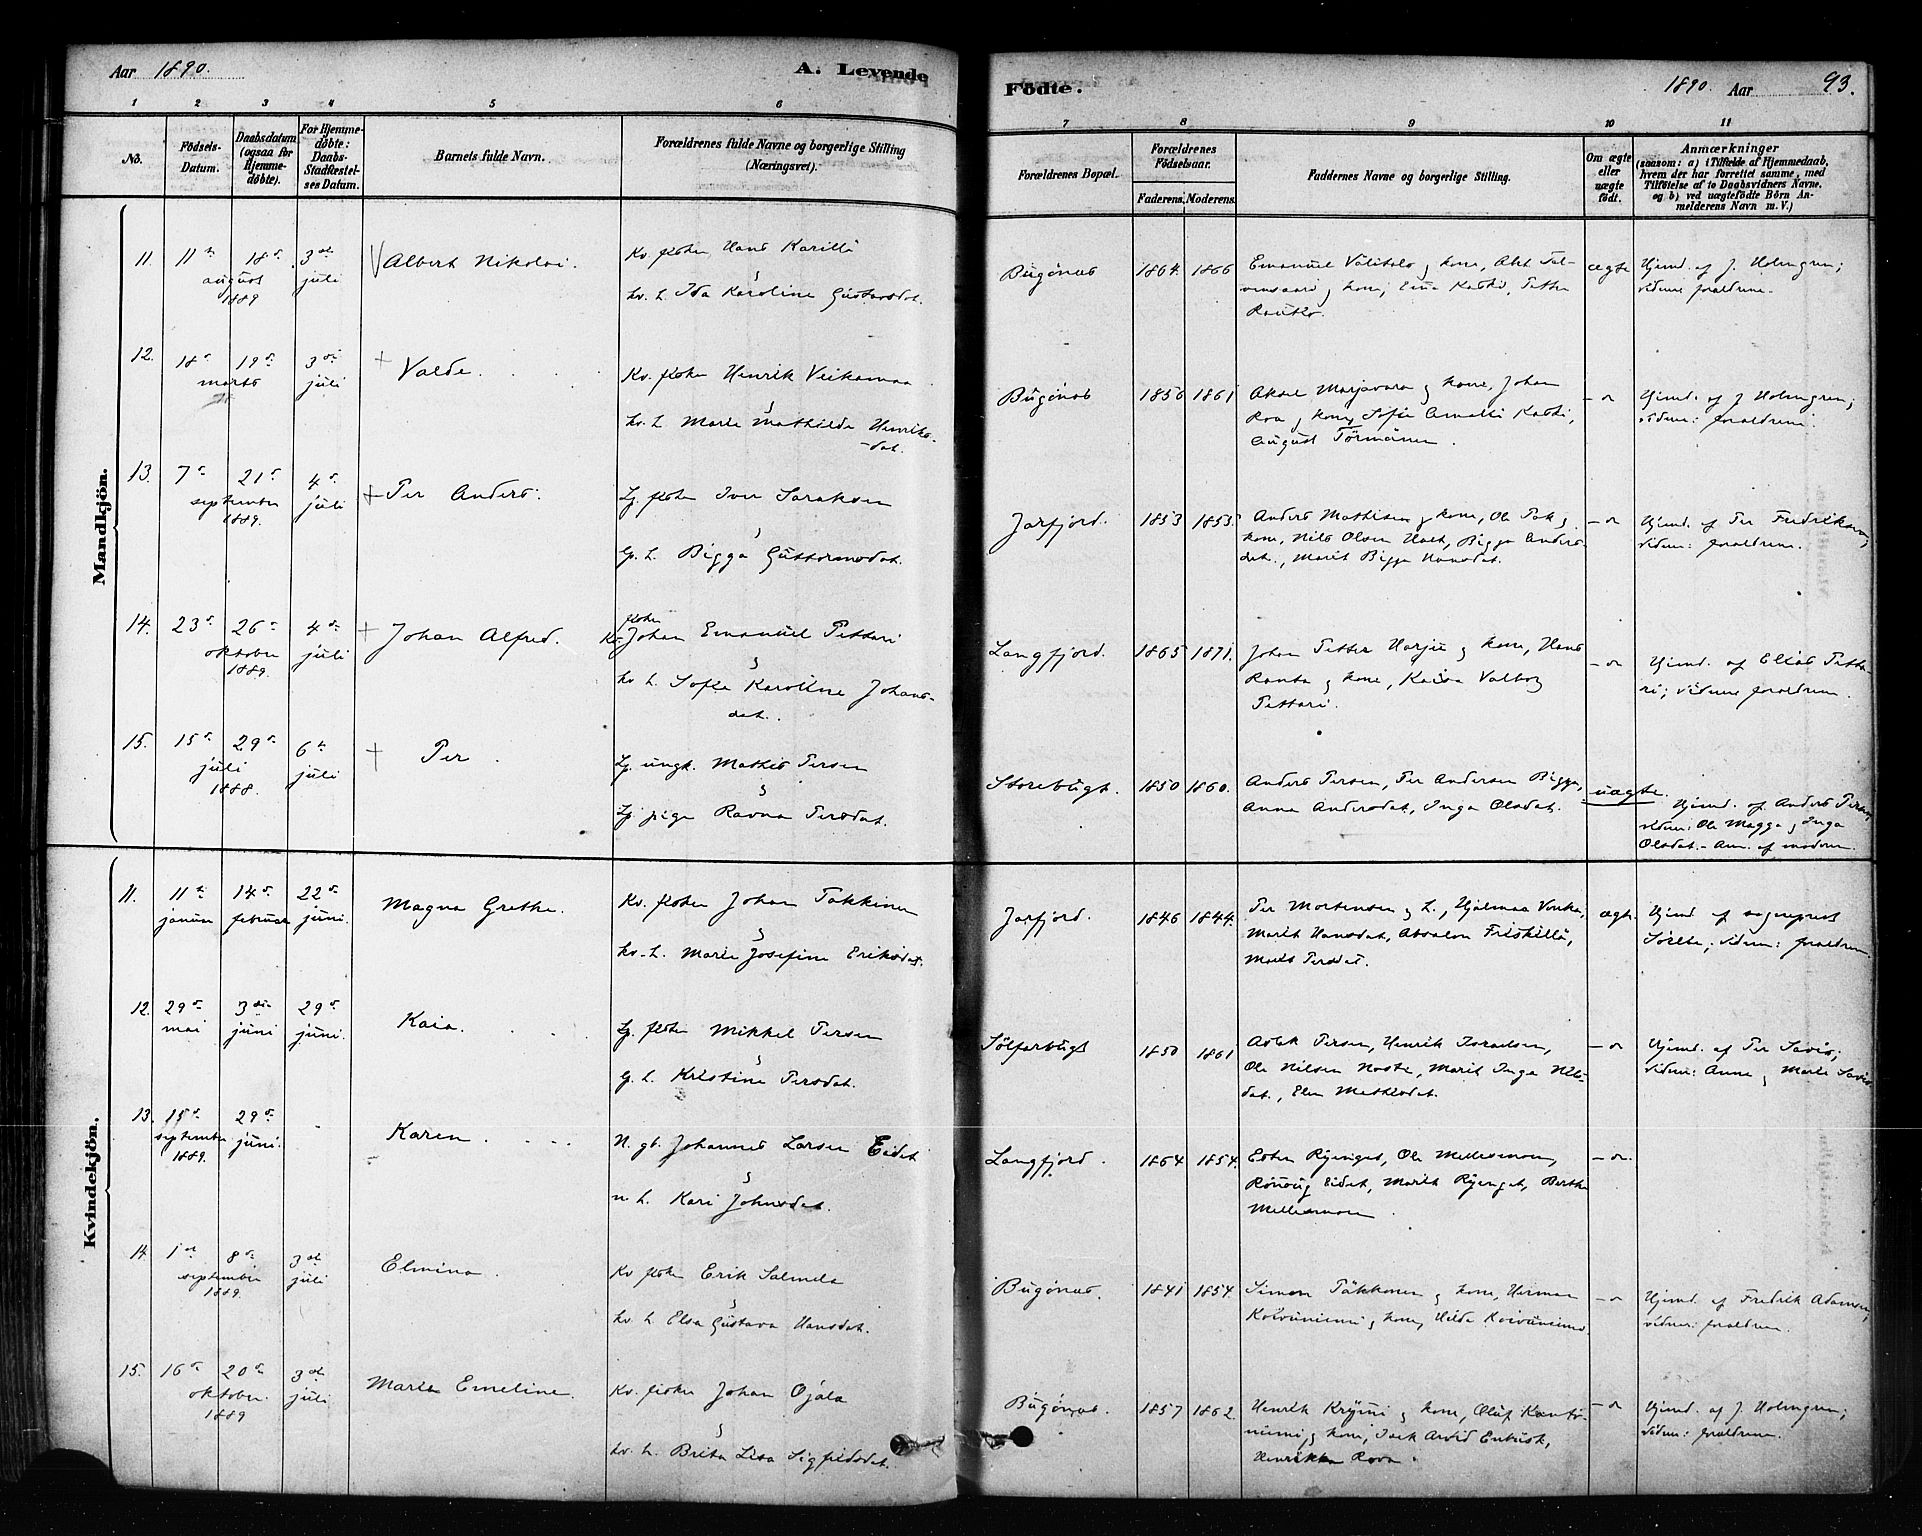 Aar 1890.
A. Levende
Födte.
1890. Aar
93.
1 2 3 4 5 6 7 8 9 10 11
No.
Födsels-Datum.
Daabsdatum (ogsaa for Hjemmedøbte).
For Hjemmedøbte: Daabs-Stadfæstelses Datum.
Barnets fulde Navn.
Forældrenes fulde Navne og borgerlige Stilling (Næringsvei).
Forældrenes Bopæl.
Forældrenes Födselsaar.
Faderens. Moderens.
Faddernes Navne og borgerlige Stilling.
Om ægte eller uægte födt.
Anmærkninger
(saasom: a) i Tilfælde af Hjemmedaab, hvem der har forrettet samme, med Tilföielse af to Daabsvidners Navne, og b) ved uægtefödte Börn Anmelderens Navn m. V.)
Mandkjön.
11. 11 18 3 juli
august
1889
Albert Nikolai.
Kv. fisker Hans Karillä
kv. h. Ida Karoline Gustavsdat.
Bugönæs 1864. 1866
Emanuel Välitalo & kone, Abt.
& kone, Eva Koski, Petter
ægte
Hjemd. af J. Holmgren;
vidner forældrene.
12. 18 19 3 juli
marts
Valde.
Kv. fisker Henrik Veikamaa
kv. h. Marie Mathilde Henriks-
dat.
Bugönæs 1856 1861
Aksel Marjavara & kone, Johan
& kone, Sofie Amalie Koski,
August Törmänen.
Hjemd. af J. Holmgren;
vidner: forældrene.
13. 7 21 4 juli
september
1889.
Per Anders.
Lp. fisker Iver Saraksen
lp. h. Bigga Guttormsdat.
Jarfjord. 1853 1853.
Anders Mathisen & kone, Ole &
kone, Nils Olsen, Bigga Anders-
dat., Marit Bigga Hansdat.
Hjemd. af Per Fredriksen;
vidner: forældrene.
14. 23 26 4 juli
oktober
1889.
Johan Alfred.
Kv. fisker Johan Emanuel Pettari
kv. h. Sofie Karoline Johans-
dat.
Langfjord. 1865 1871.
Johan Petter Harju & kone, Hans
Ranta & kone, Kaisa Valborg
Pettari.
Hjemd. af Elias Petta-
ri; vidner forældrene.
15. 15 29 6 juli
juli
1888.
Per.
Lp. ungk. Mathis Persen
Lp. pige Ravna Persdat.
Storebugt. 1850 1860.
Anders Persen, Per Andersen Bigga,
Anna Andersdat, Inga Olsdat.
uægte.
Hjemd. af Anders Persen,
vidner: Ole Magga & Inga
Olsdat. - Anm. af moderen.
Kvindekjön.
11. 11 januar 14 februar 22 juni.
Magna Grethe.
Kv. fisker Johan Takkinen
kv. h. Marie Josefine Eriksdat.
Jarfjord. 1846 1844.
Per Mortensen & h., Hjalmar,
Marit Hansdat, Absalon Friskillä,
Persdat.
ægte.
Hjemd. af sogneprest
vidner: forældrene
12. 29 mai 3 juni 29 juni.
Kaia.
Lp. fisker Mikkel Persen
lp. h. Kristine Persdat.
Sölfarbugt 1850 1861
Aslak Persen, Henrik Israelsen,
Ole Nilsen Noste, Marit Inga Nils-
dat., Elen Mathisdat.
Hjemd. af Per Savio;
vidner: Anne & Marie Savio
13. 15 september 1889. 29 juni.
Karen.
N. gb. Johannes Larsen Eidet
n. h. Kari Johnsdat.
Langfjord. 1864 1854.
Esten Ryenget, Ole Mellesmoen,
Rönnaug Eidet, Marit Ryenget, Berthe
Mellesmoen.
14. 1 8 3 juli
september
1889.
Elmina.
Kv. fisker Erik Salmela
kv. h. Elsa Gustava Hansdat.
Bugönæs. 1841 1854.
Simon Täkkonen & kone, Herman
Koivuniemi & kone, Hilda Koivuniemi
Hjemd. af Fredrik Adamsen;
vidner: forældrene.
15. 16 20 3 juli
oktober.
1889
Marie Emeline.
Kv. fisker Johan Ojala
kv. h. Brita Lisa Sigfridsdat.
Bugönæs. 1857 1862.
Henrik Kryni & kone, Oluf
niemi & kone, Isak Arvid,
Henrikka Rova.
Hjemd. af J. Holmgren;
vidner: forældrene.